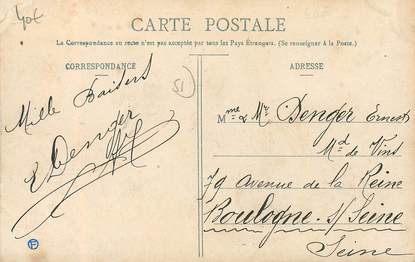 40€
CARTE POSTALE
La Correspondance au recto n'est pas acceptée par tous les Pays Étrangers. (Se renseigner à la Poste.)
CORRESPONDANCE
ADRESSE
51
Mille Baisers
E Denger
Mme & Mr Denger Ernest
Md de Vins
79 avenue de la Reine
Boulogne s/Seine
Seine